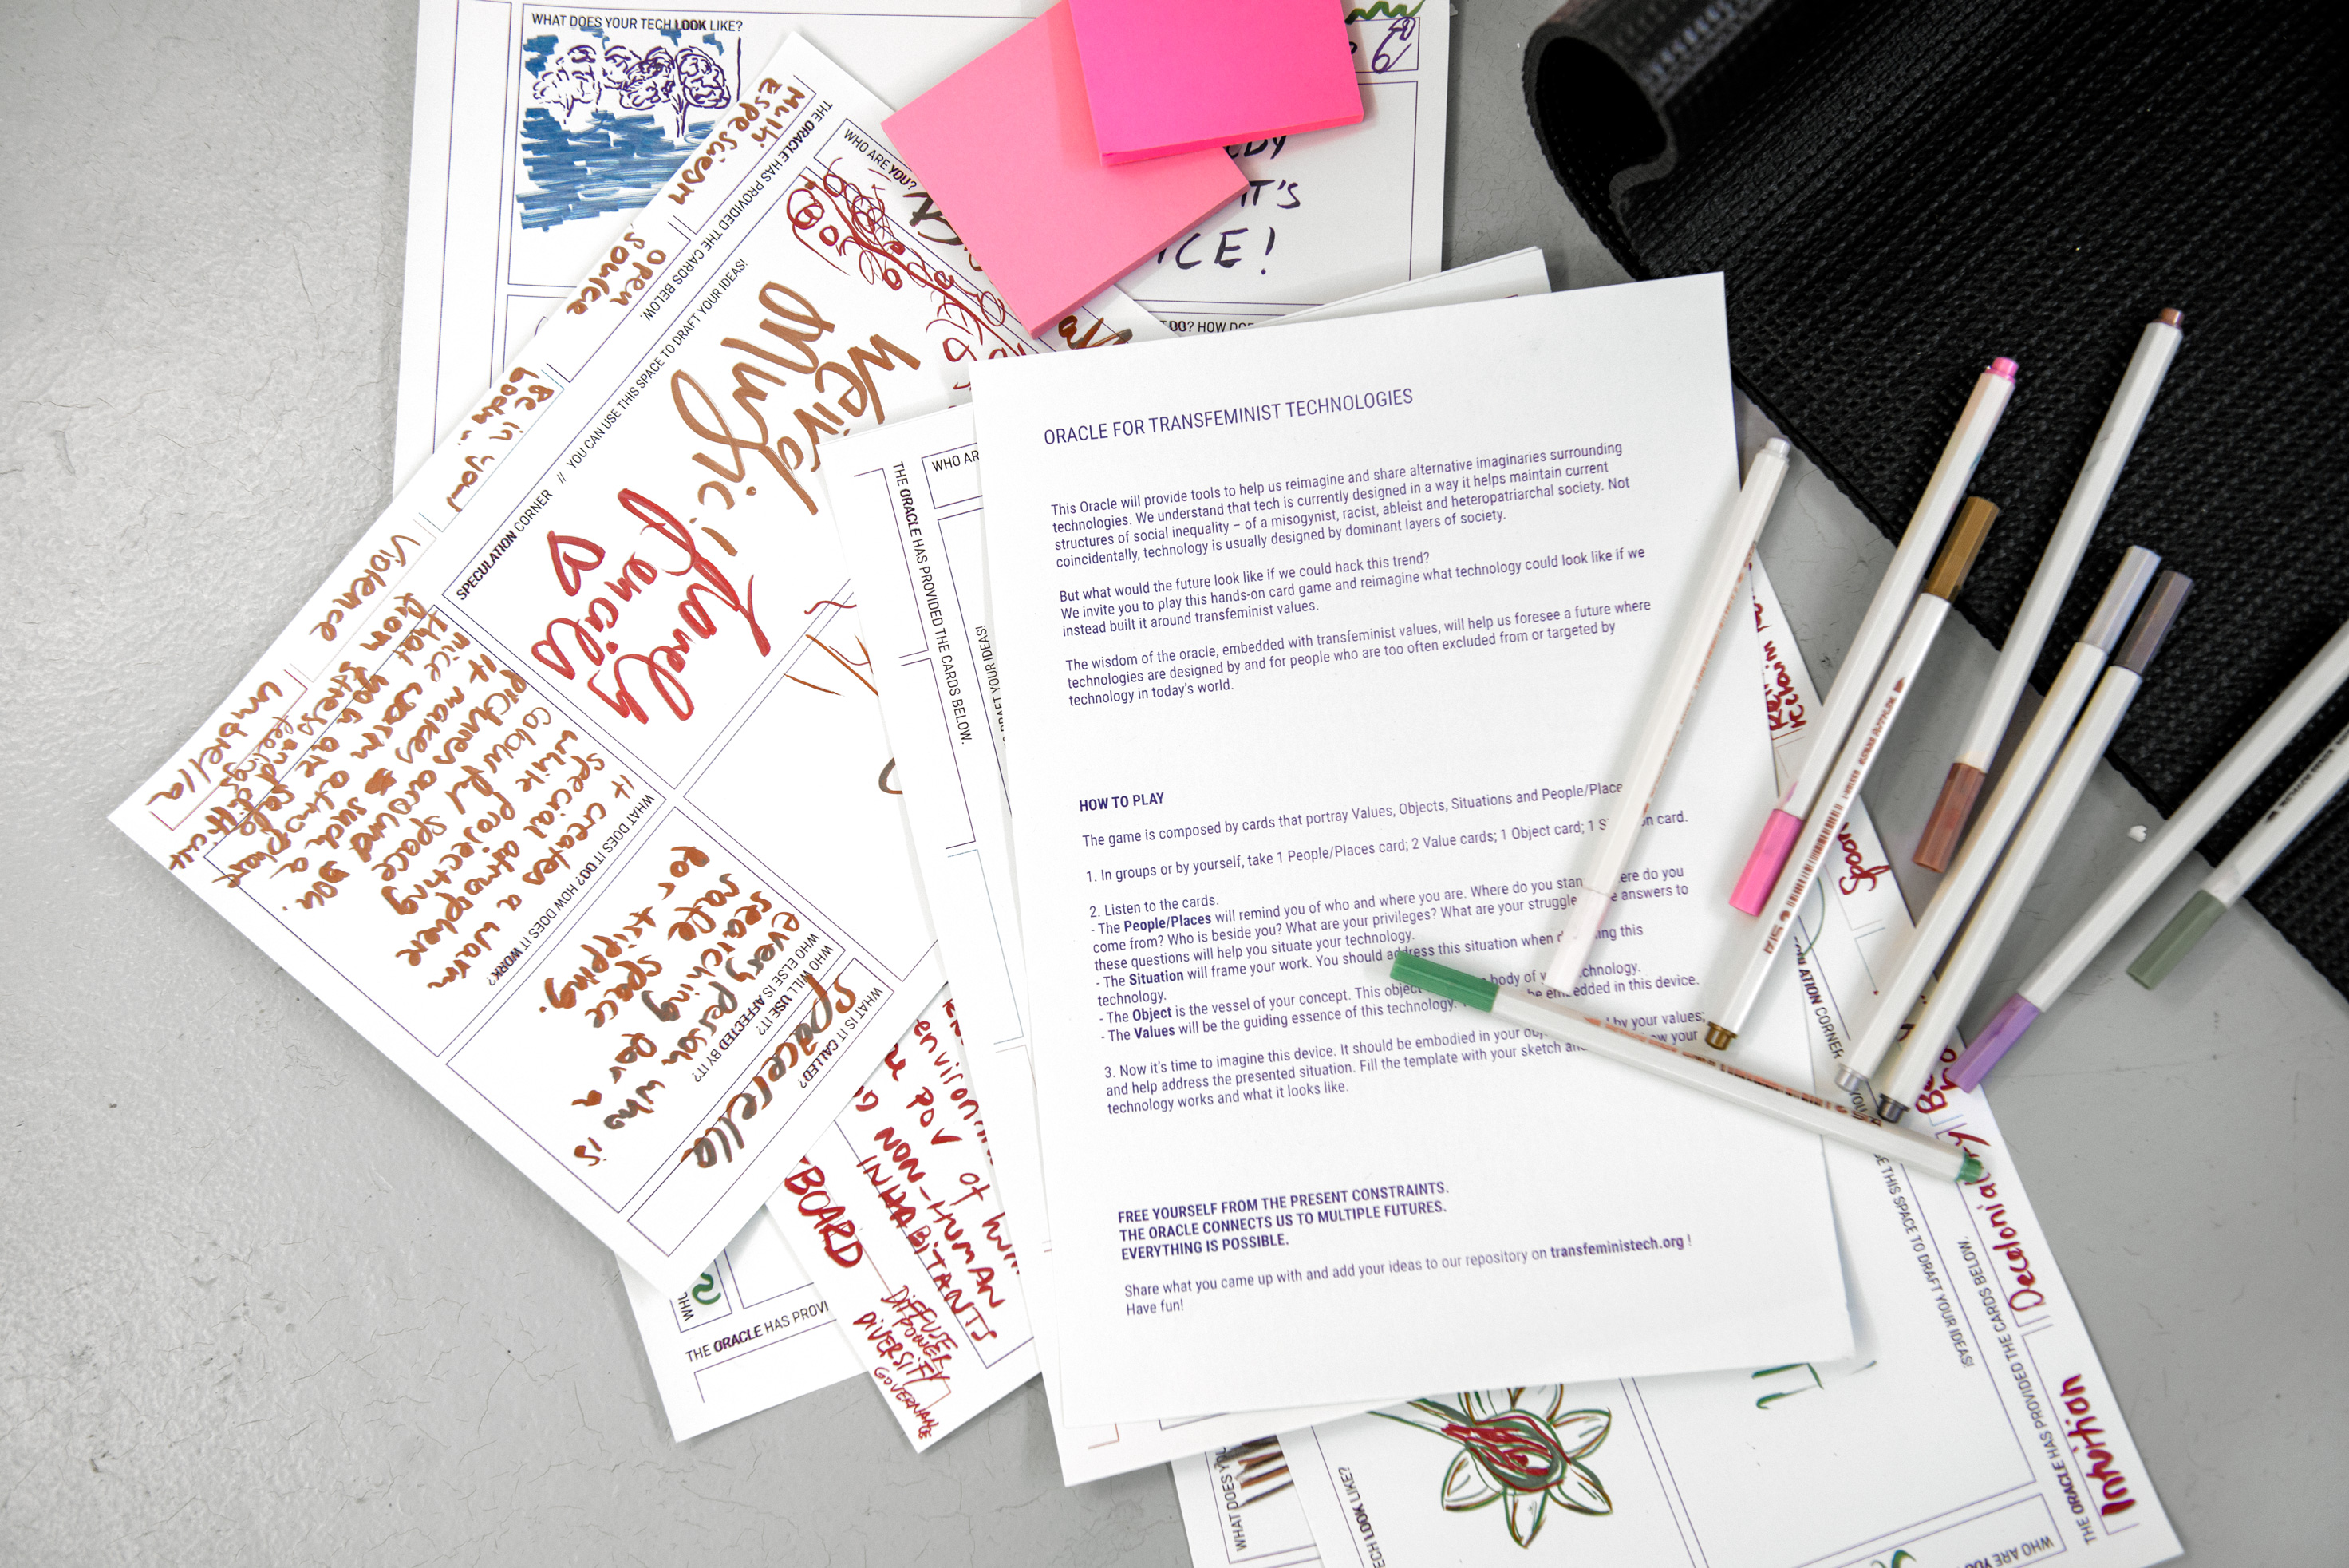 WHAT DOES YOUR TECH LOOK LIKE?
IT'S
ICE!
DO? HOW DOE
ORACLE FOR TRANSFEMINIST TECHNOLOGIES
This Oracle will provide tools to help us reimagine and share alternative imaginaries surrounding
technologies. We understand that tech is currently designed in a way it helps maintain current
structures of social inequality – of a misogynist, racist, ableist and heteropatriarchal society. Not
coincidentally, technology is usually designed by dominant layers of society.
But what would the future look like if we could hack this trend?
We invite you to play this hands-on card game and reimagine what technology could look like if we
instead built it around transfeminist values.
The wisdom of the oracle, embedded with transfeminist values, will help us foresee a future where
technologies are designed by and for people who are too often excluded from or targeted by
technology in today's world.
HOW TO PLAY
The game is composed by cards that portray Values, Objects, Situations and People/Place
1. In groups or by yourself, take 1 People/Places card; 2 Value cards; 1 Object card; 1 S n card.
2. Listen to the cards.
- The People/Places will remind you of who and where you are. Where do you stan ere do you
come from? Who is beside you? What are your privileges? What are your struggle e answers to
these questions will help you situate your technology.
- The Situation will frame your work. You should address this situation when d ing this
technology.
- The Object is the vessel of your concept. This object body of y chnology.
- The Values will be the guiding essence of this technology. be embedded in this device.
3. Now it's time to imagine this device. It should be embodied in your obj by your values;
and help address the presented situation. Fill the template with your sketch an ow your
technology works and what it looks like.
FREE YOURSELF FROM THE PRESENT CONSTRAINTS.
THE ORACLE CONNECTS US TO MULTIPLE FUTURES.
EVERYTHING IS POSSIBLE.
Share what you came up with and add your ideas to our repository on transfeministech.org !
Have fun!
THE ORACLE HAS PROVIDED THE CARDS BELOW.
Multi
Espesciesm
Open
source
Be in your
body
Violence
umbrella
WHO ARE YOU?
SPECULATION CORNER // YOU CAN USE THIS SPACE TO DRAFT YOUR IDEAS!
Weird
Music!
Lovely
fencails
WHAT DOES IT DO? HOW DOES IT WORK?
it creates a warm
special atmospher
while projecting
colourful space
pichures around you.
it makes such a
nice warm atmosphere
that you are
from stress
and
feelings
WHO WILL USE IT?
WHO ELSE IS AFFECTED BY IT?
every person who is
searching for a
safe space
for tripping.
WHAT IS IT CALLED?
Spacerella
WHO AR
THE ORACLE HAS PROVIDED THE CARDS BELOW.
DRAFT YOUR IDEAS!
environm
POV of hum
NON-HUMAN
INHABITANTS
BOARD
DIFFUSE
POWER
DIVERSITY
GOVERNANCE
WHO
THE ORACLE HAS PROVI
WHAT DOES YOU
TECH LOOK LIKE?
Spoon
ATION CORNER
SE THIS SPACE TO DRAFT YOUR IDEAS!
Decoloniality
Intuition
THE ORACLE HAS PROVIDED THE CARDS BELOW.
WHO ARE YOU